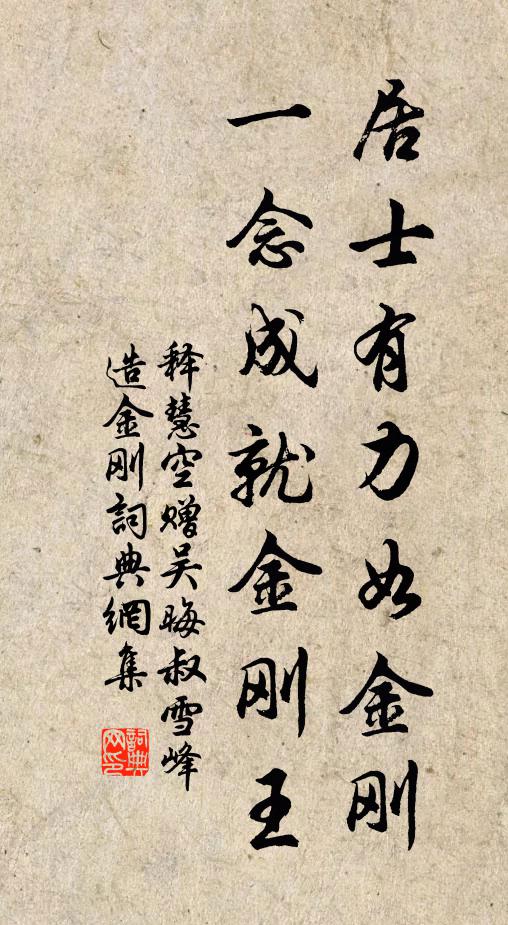 居士有力如金刚
一念成就金刚王
释慧空赠吴晦叔雪峰
造金刚詞典網集
詞典
网印